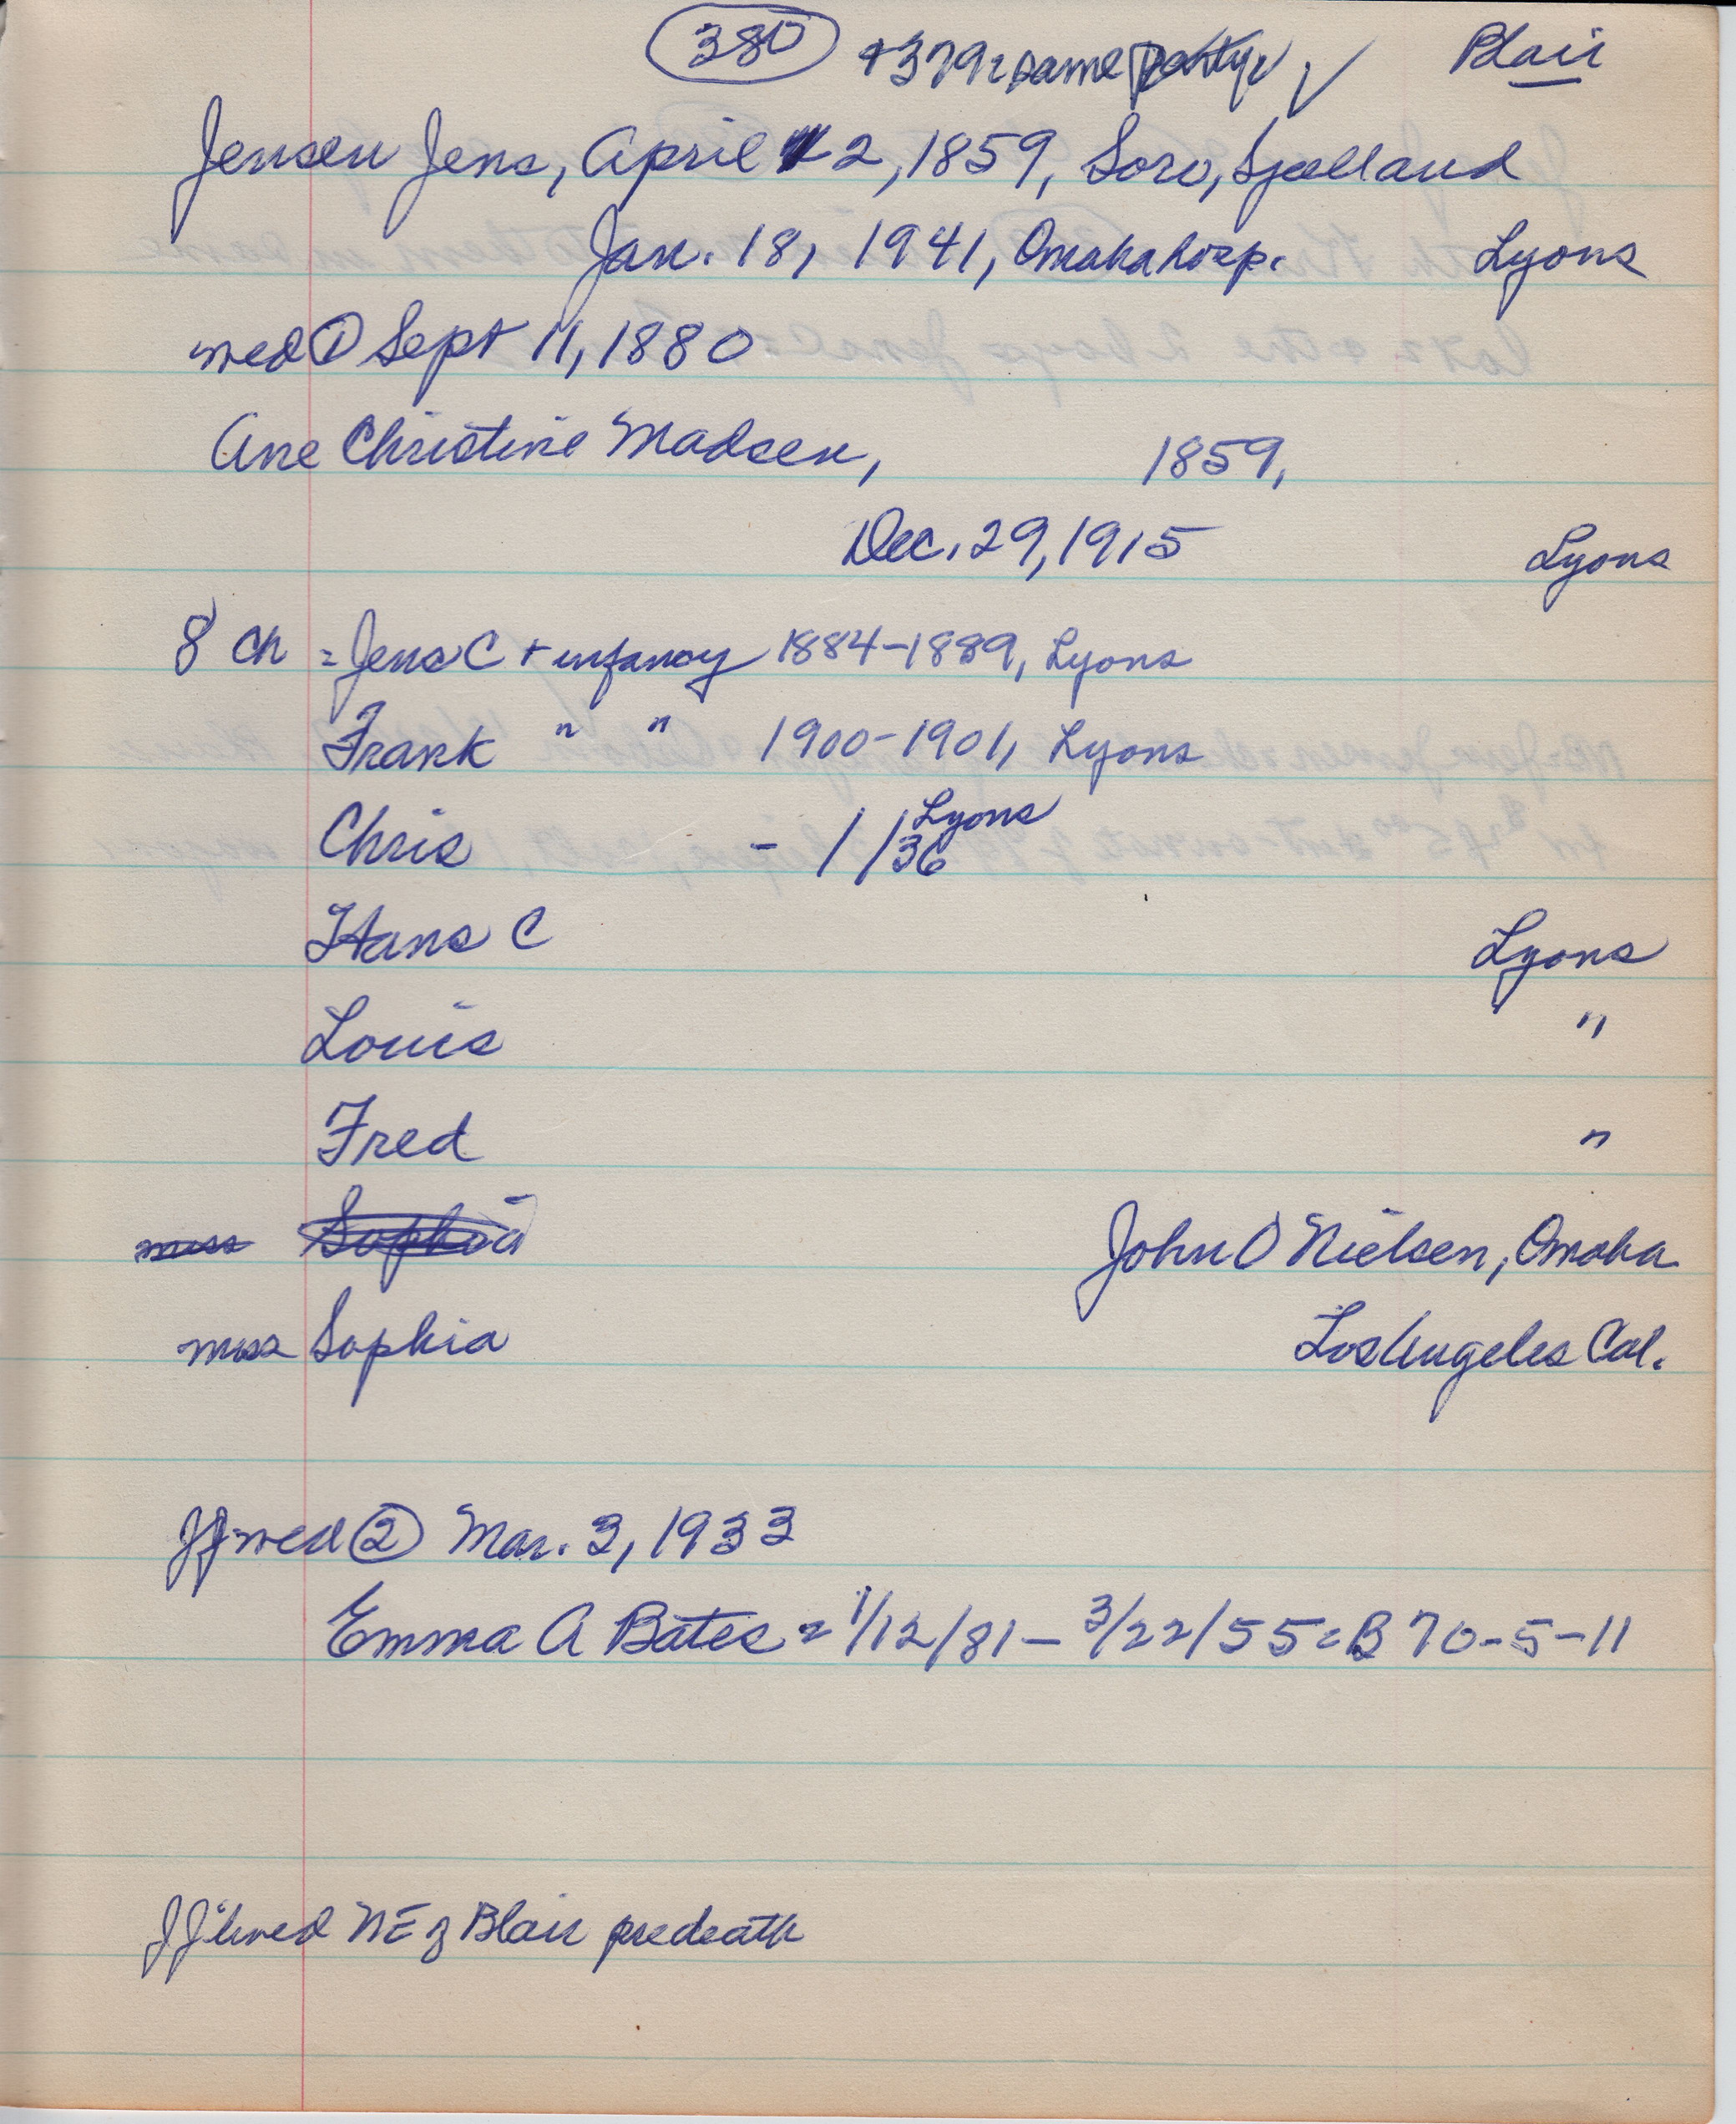 380 + 379 = same party ✓ Blair
Jensen Jens, April 2, 1859, Soro, Sjælland
Jan. 18, 1941, Omaha hosp. Lyons
med ① Sept 11, 1880
Ane Christine Madsen, 1859,
Dec. 29, 1915 Lyons
8 Ch = Jens C + infancy 1884-1889, Lyons
Frank " " 1900-1901, Lyons
Chris - / /36 Lyons
Hans C Lyons
Louis "
Fred "
miss Sophia John O Nielsen, Omaha
miss Sophia Los Angeles Cal.
JJ med ② Mar. 3, 1933
Emma A Bates = 1/12/81 - 3/22/55 = B 70-5-11
JJ lived NE of Blair predeath